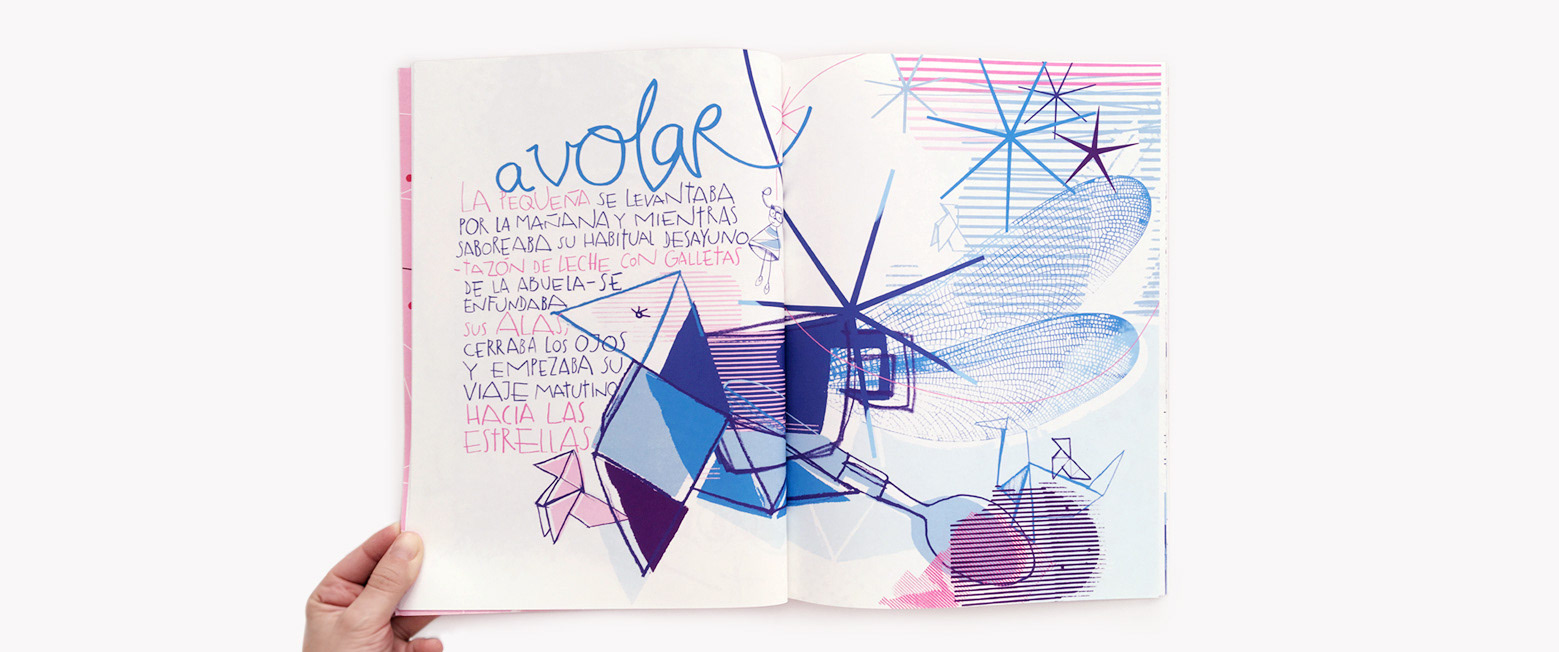 a volar
LA PEQUEÑA SE LEVANTABA
POR LA MAÑANA Y MIENTRAS
SABOREABA SU HABITUAL DESAYUNO
-TAZÓN DE LECHE CON GALLETAS
DE LA ABUELA-SE
ENFUNDABA
SUS ALAS
CERRABA LOS OJOS
Y EMPEZABA SU
VIAJE MATUTINO
HACIA LAS
ESTRELLAS